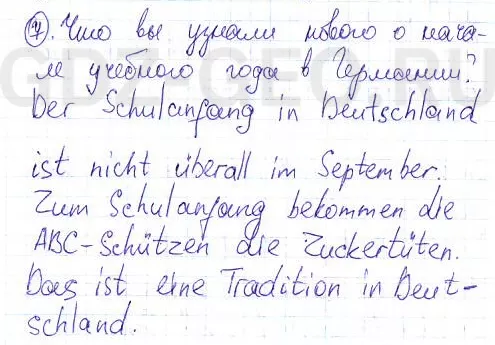 7. Что вы узнали нового о нача-
ле учебного года в Германии?
Der Schulanfang in Deutschland
ist nicht überall im September.
Zum Schulanfang bekommen die
ABC-Schützen die Zuckertüten.
Das ist eine Tradition in Deut-
schland.